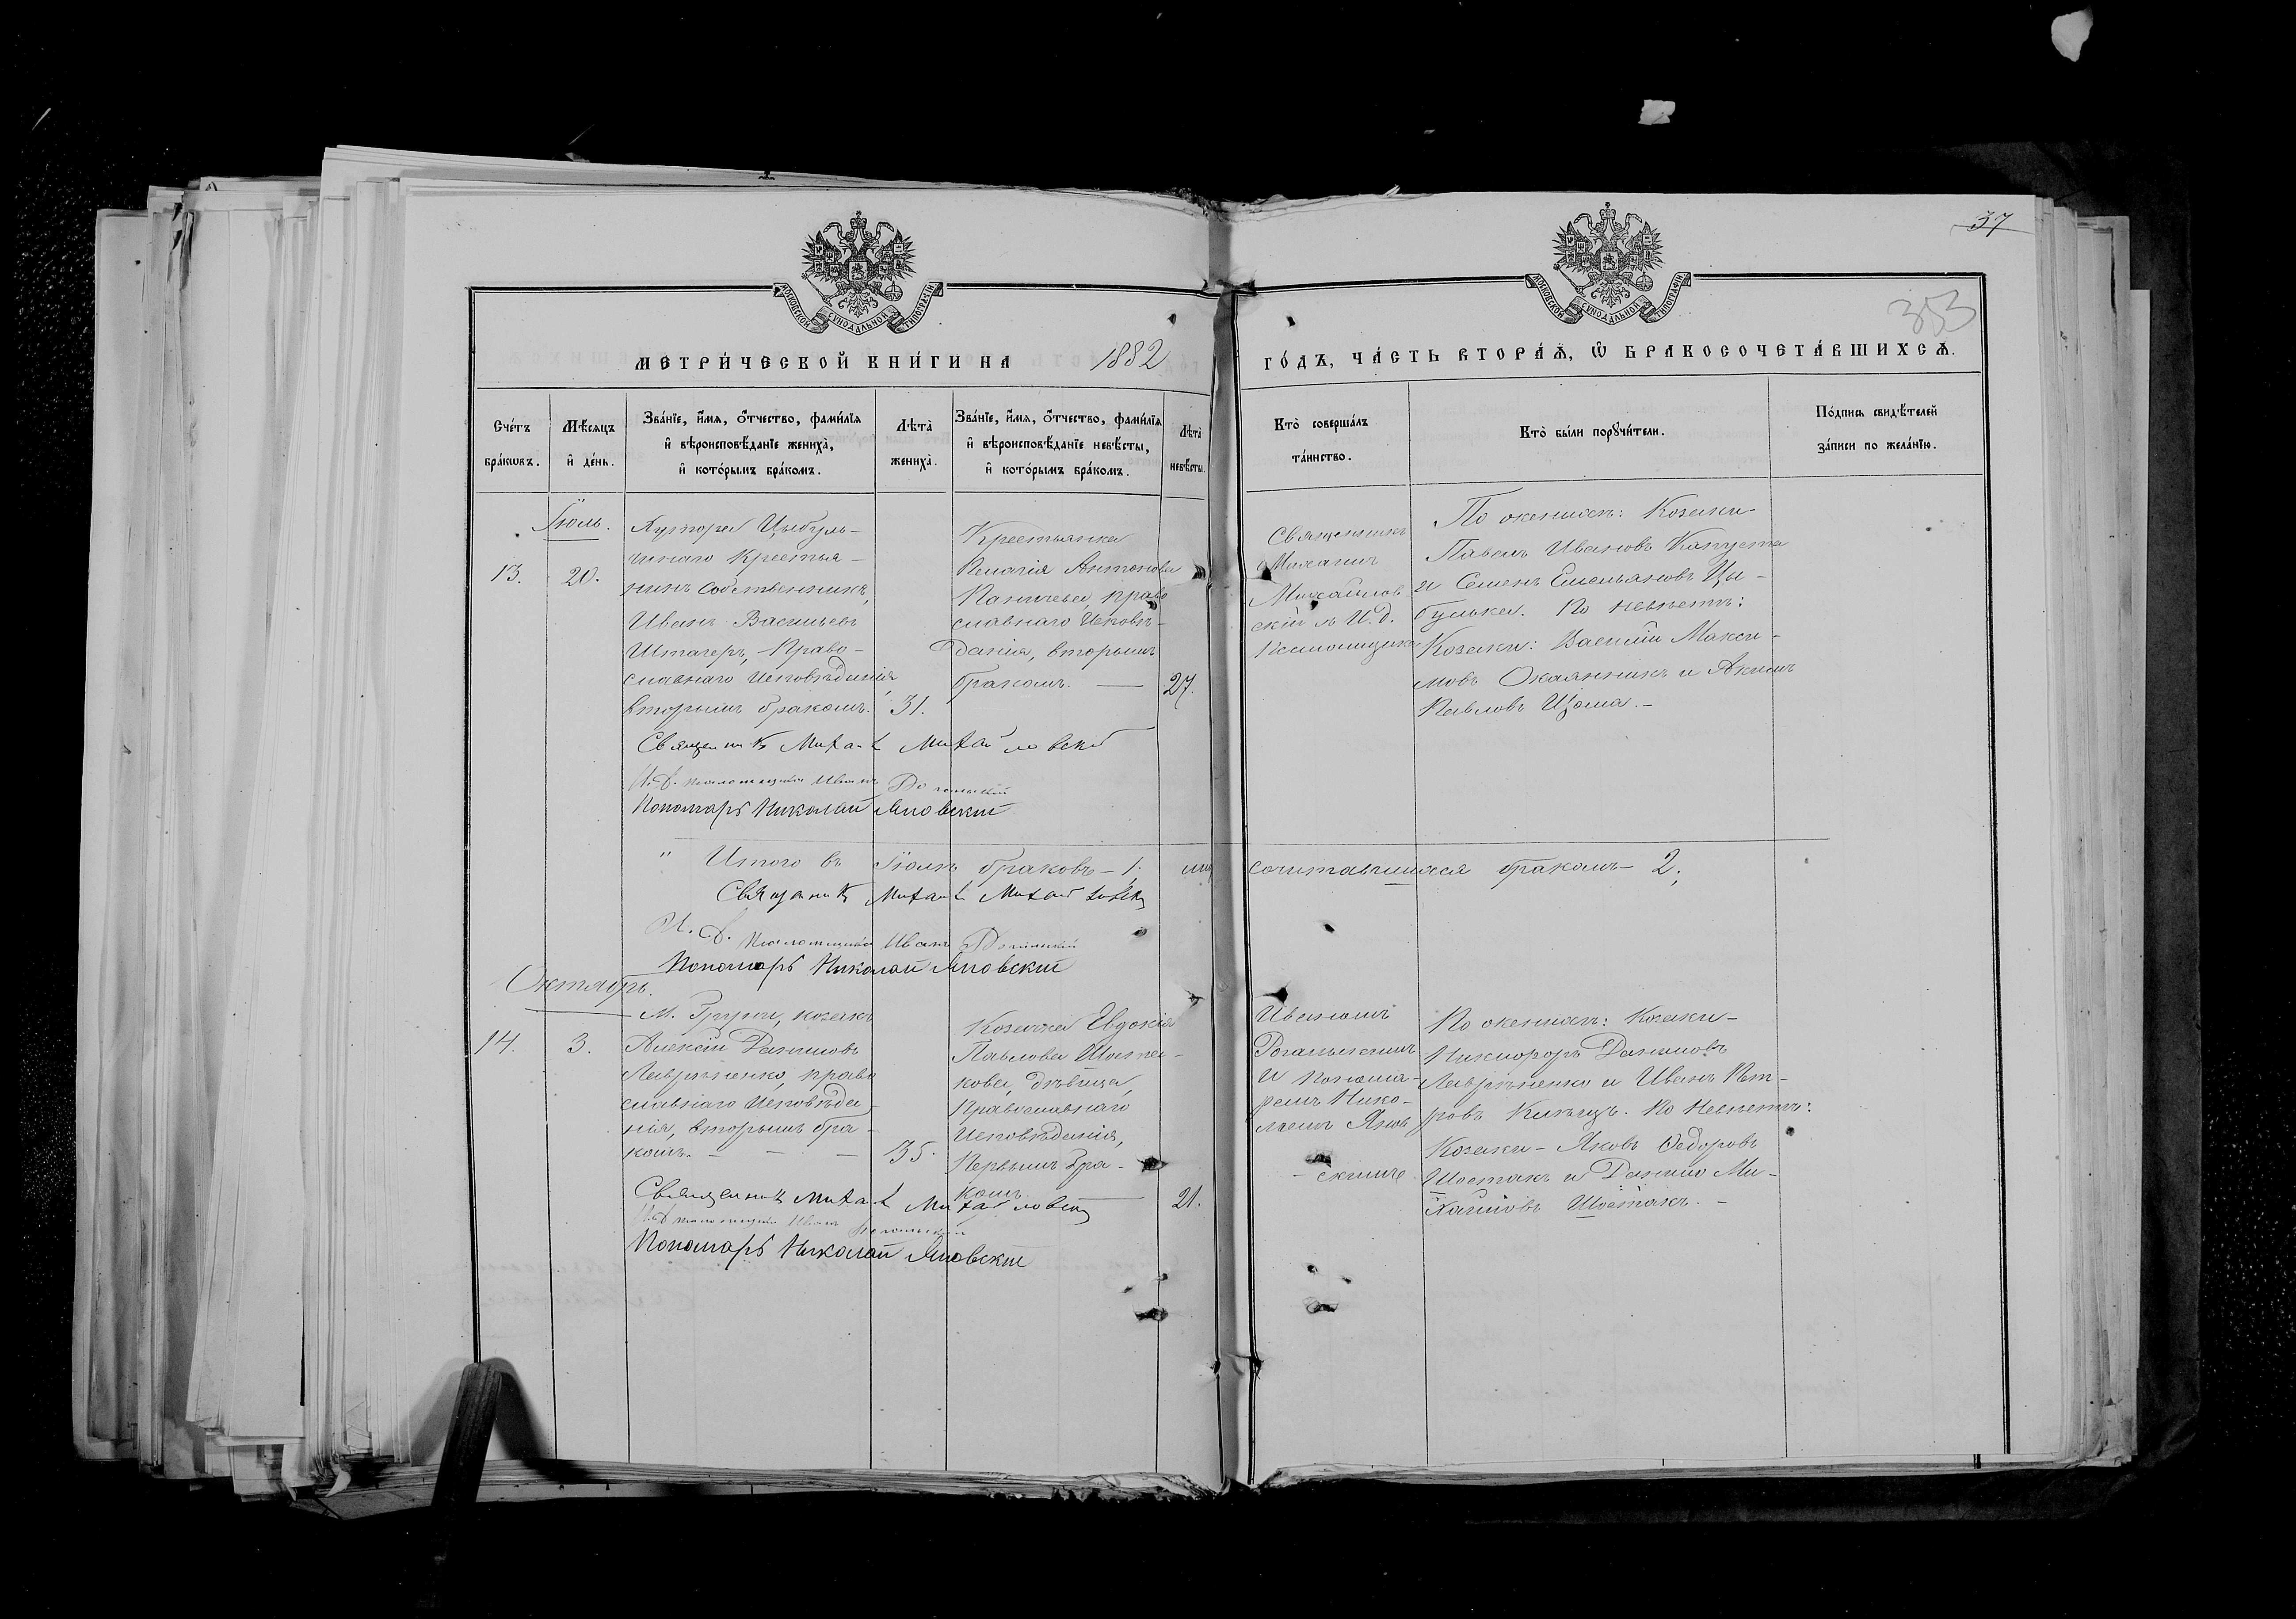 37
353
МОСКОВСКОЙ СѴНОДАЛЬНОЙ ТИПОГРАФІИ
МОСКОВСКОЙ СѴНОДАЛЬНОЙ ТИПОГРАФІИ
МЕТРИ́ЧЕСКОЙ КНИ́ГИ НА 1882
ГО́ДЪ, ЧА́СТЬ ВТОРА́Ѧ, Ѽ БРАКОСОЧЕТА́ВШИХСѦ.
Сче́тъ бра́кѡвъ.
Мѣ́сяцъ и҆ де́нь.
Зва́нїе, и҆́мѧ, ѻ҆́тчество, фами́лїѧ
и҆ вѣроисповѣ́данїе жениха̀,
и҆ кото́рымъ бра́комъ.
Лѣта̀ жениха̀.
Зва́нїе, и҆́мѧ, ѻ҆́тчество, фами́лїѧ
и҆ вѣроисповѣ́данїе невѣ́сты,
и҆ кото́рымъ бра́комъ.
Лѣта̀ невѣ́сты.
Кто̀ соверша́лъ
та́инство.
Кто̀ бы́ли порꙋчи́тели.
По́дпись свидѣ́телей
за́писи по жела́нїю.
Іюль.
13.
20.
Хутора Цыбуль-
чинаго Крестья-
нинъ Собственникъ,
Иванъ Васильевъ
Право-
славнаго Исповѣданія,
вторымъ бракомъ.
31.
Крестьянка
Пелагія Антонова
право
славнаго Исповѣ-
данія, вторымъ
бракомъ. —
27.
Священникъ
Михаилъ
Михайлов
скій И.д.
Псаломщика
По женихѣ: Козаки-
Павелъ Ивановъ Капуста
и Семенъ Емельяновъ Цы-
булька. По невѣстѣ:
Козаки: Василій Макси-
мовъ Окаянникъ и Акимъ
Павловъ
Священникъ Михаилъ Михайловскій
И.д. псаломщика Иванъ
Пономарь Николай Яновскій
" Итого въ Іюлѣ браковъ - 1;
сочитавшихся бракомъ - 2;
Священникъ Михаилъ Михайловскій
И.д. Псаломщика Иванъ
Пономарь Николай Яновскій
Октябрь.
14.
3.
М. Груни, козакъ
Алексій Даниловъ
Лавриненко, право
славнаго Исповѣда-
нія, вторымъ бра-
комъ. - - -
35.
Козачка Евдокія
Павлова Шоста-
кова, дѣвица,
Православнаго
Исповѣданія,
Первымъ Бра-
комъ —
21.
Иваномъ
и Понома-
ремъ Нико-
лаемъ Янов
- скимъ
По женихѣ: Козаки-
Никифоръ Даниловъ
Лавриненко и Иванъ Пет-
ровъ По Невѣстѣ:
Козаки - Яковъ Ѳедоровъ
Шостакъ и Данило Ми-
хайловъ Шостакъ. -
Священникъ Михаилъ Михайловскій
И.д. псаломщика Иванъ
Пономарь Николай Яновскій